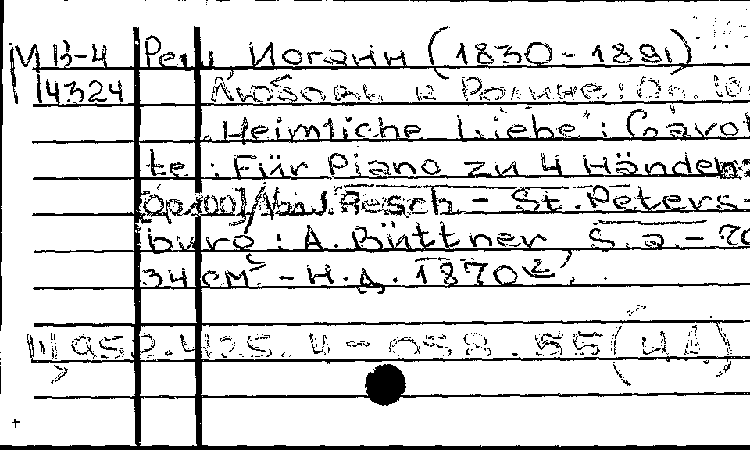 М В-4 Реш, Иоганн (1830-1881)
14324 Любовь к Родине: Op. 10
"Heimliche Liebe": Gavot
te: Für Piano zu 4 Händen:
[Op.100] / Resch - St. Peters-
burg: A. Büttner, S. a. -
34 см - Н.д. 1870 г.
Ш 952.425.4-058.55 (4А)